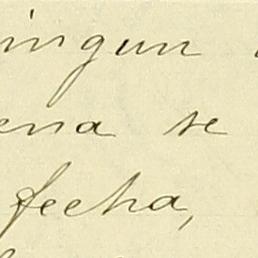 ningun
ena se
fecha,